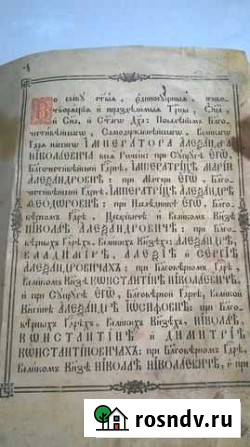 Во славу ст҃ыѧ, єдиносꙋщныѧ, живо-
творѧщїѧ и нераздѣлимыѧ Трⷪ҇цы, Ѻ҆ц҃а̀
и Сн҃а, и Ст҃а́гѡ Дх҃а: Повелѣнїемъ Благо-
честивѣйшагѡ, Самодержавнѣйшагѡ, Великагѡ
Гдⷭ҇рѧ нашегѡ ИМПЕРАТОРА АЛЕѮАНДРА
НІКОЛАЕВИЧА всеѧ Рѡссїи: при Сꙋпрꙋгѣ ЕГѠ,
Благочестивѣйшей Гдⷭ҇рнѣ, ИМПЕРАТРИЦѢ МАРІИ
АЛЕѮАНДРОВНѢ: при Матери ЕГѠ, Благо-
честивѣйшей Гдⷭ҇рнѣ, ИМПЕРАТРИЦѢ АЛЕѮАНДРѢ
ѲЕОДѠРОВНѢ: при Наслѣдникѣ ЕГѠ, Благо-
вѣрномъ Гдⷭ҇рѣ, Цесаревичѣ и Великомъ Кнѧзѣ
НІКОЛАѢ АЛЕѮАНДРОВИЧѢ: при Благо-
вѣрныхъ Гдⷭ҇рѣхъ, Великихъ Кнѧзехъ: АЛЕѮАНДРѢ,
ВЛАДИМІРѢ, АЛЕѮІИ и СЕРГІИ
АЛЕѮАНДРОВИЧАХЪ: при Благовѣрномъ Гдⷭ҇рѣ,
Великомъ Кнѧзѣ КѠНСТАНТІНѢ НІКОЛАЕВИЧѢ,
и при Сꙋпрꙋгѣ ЕГѠ, Благовѣрной Гдⷭ҇рнѣ, Великой
Кнѧгинѣ АЛЕѮАНДРѢ ІѠСИФОВНѢ: при Благо-
вѣрныхъ Гдⷭ҇рѣхъ, Великихъ Кнѧзехъ, НІКОЛАѢ,
КѠНСТАНТІНѢ и ДИМИТРІИ
КѠНСТАНТІНОВИЧАХЪ: при Благовѣрномъ Гдⷭ҇рѣ,
Великомъ Кнѧзѣ НІКОЛАѢ НІКОЛАЕВИЧѢ, и при
rosndv.ru